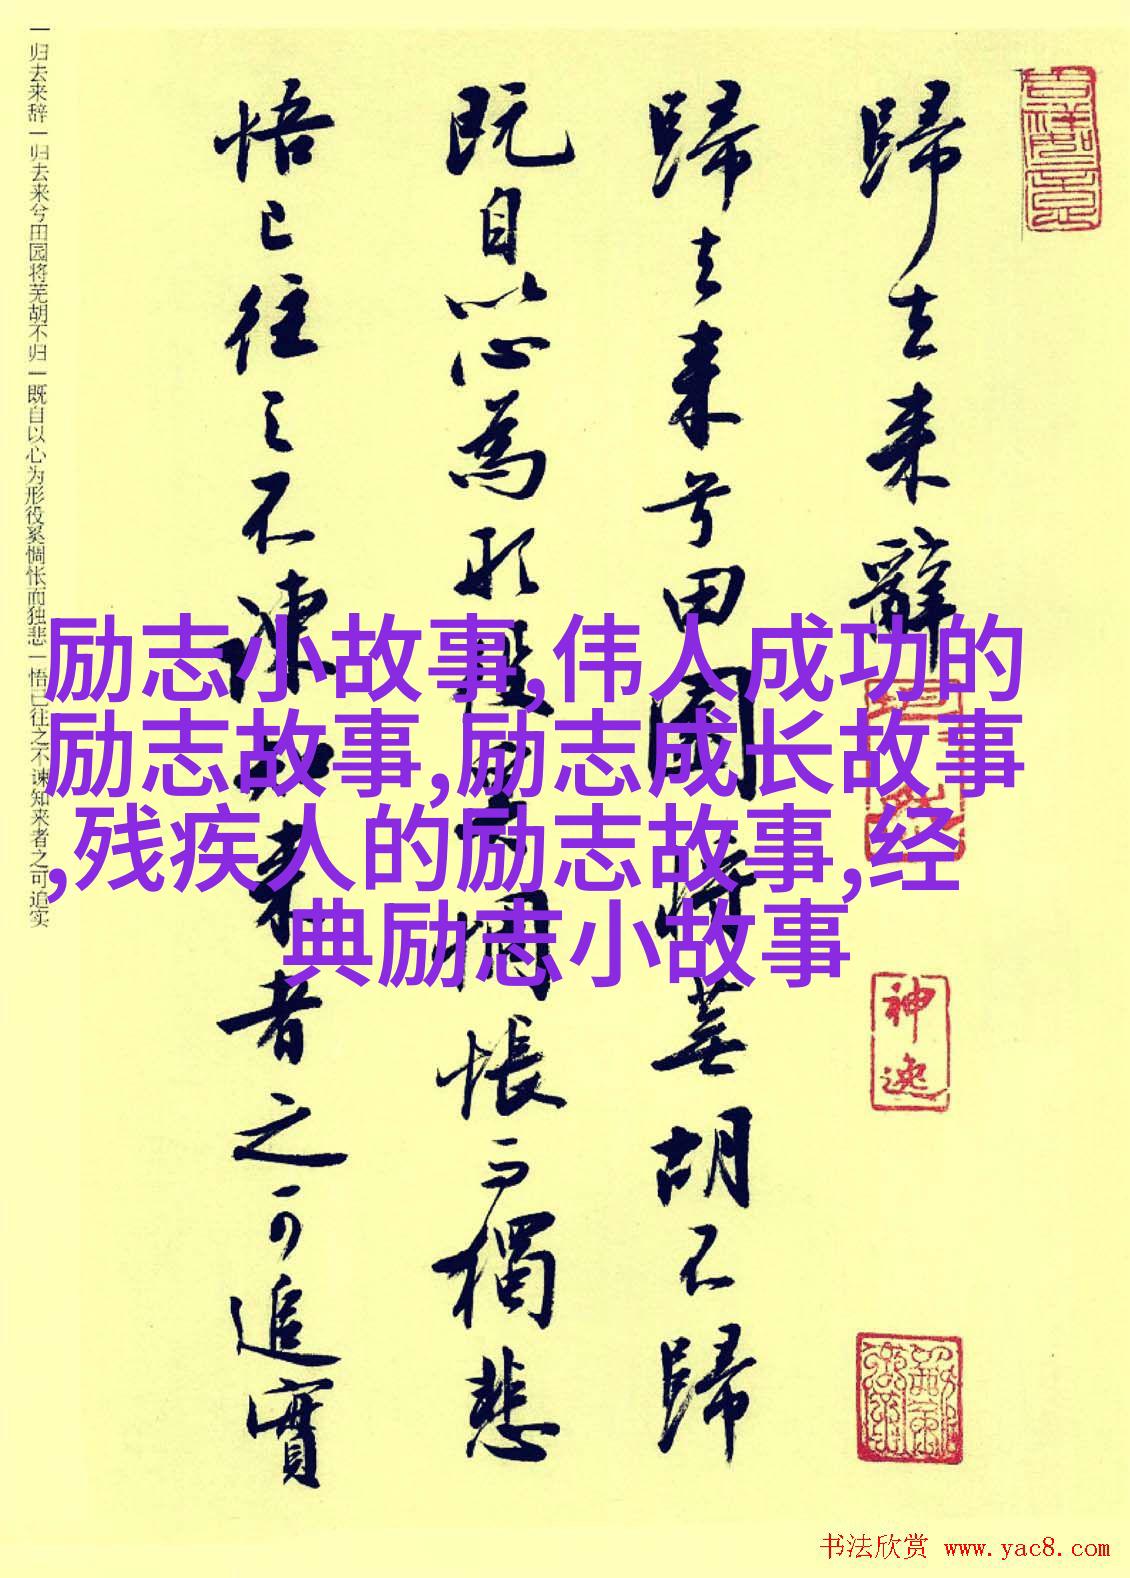 歸去来辭
歸去来兮田園将蕪胡不歸
既自以心為形役奚惆悵而獨悲
悟已往之不諫知来者之可追實
一归去来辞一归去来兮田园将芜胡不归一既自以心为形役奚惆怅而独悲一悟已往之不谏知来者之可追实
励志小故事,伟人成功的
励志故事,励志成长故事
,残疾人的励志故事,经
典励志小故事
神逸
书法欣赏 www.yac8.com